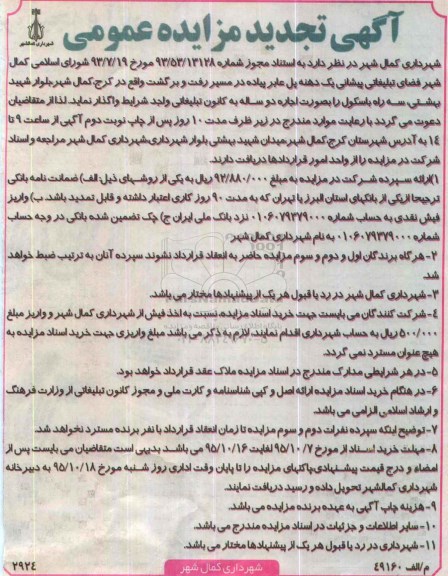 آگهی تجدید مزایده عمومی
شهرداری کمالشهر
شهرداری کمال شهر در نظر دارد به استناد مجوز شماره ۹۳/۵۳/۱۳۱۲۸ مورخ ۹۳/۷/۱۹ شورای اسلامی کمال
شهر فضای تبلیغاتی پیشانی یک دهنه پل عابر پیاده در مسیر رفت و برگشت واقع در کرج، کمال شهر، بلوار شهید
بهشتی، سه راه باسکول را بصورت اجاره دو ساله به کانون تبلیغاتی واجد شرایط واگذار نماید. لذا از متقاضیان
دعوت می گردد با رعایت موارد مندرج در زیر ظرف مدت ۱۰ روز پس از چاپ نوبت دوم آگهی از ساعت ۹ تا
۱۴ به آدرس شهرستان کرج، کمال شهر، میدان شهید بهشتی بلوار شهرداری، شهرداری کمال شهر مراجعه و اسناد
شرکت در مزایده را از واحد امور قراردادها دریافت دارند.
۱)ارائه سپرده شرکت در مزایده به مبلغ ۹۲/۸۸۰/۰۰۰ ریال به یکی از روشهای ذیل: الف) ضمانت نامه بانکی
ترجیحا از یکی از بانکهای استان البرز یا تهران که به مدت ۹۰ روز کاری اعتبار داشته و قابل تمدید باشد. ب) واریز
فیش نقدی به حساب شماره ۰۱۰۶۰۷۹۳۷۹۰۰۰ نزد بانک ملی ایران ج) چک تضمین شده بانکی در وجه حساب
شماره ۰۱۰۶۰۷۹۳۷۹۰۰۰ به نام شهرداری کمال شهر
۲- هرگاه برندگان اول و دوم و سوم مزایده حاضر به انعقاد قرارداد نشوند سپرده آنان به ترتیب ضبط خواهد
شد.
۳- شهرداری کمال شهر در رد یا قبول هر یک از پیشنهادها مختار می باشد.
۴- شرکت کنندگان می بایست جهت خرید اسناد مزایده، نسبت به اخذ فیش از شهرداری کمال شهر و واریز مبلغ
۵۰۰/۰۰۰ ریال به حساب شهرداری اقدام نمایند. لازم به ذکر می باشد. مبلغ واریزی جهت خرید اسناد مزایده به
هیچ عنوان مسترد نمی گردد.
۵- در هر شرایطی مدارک مندرج در اسناد مزایده ملاک عقد قرارداد خواهد بود.
۶- در هنگام خرید اسناد مزایده ارائه اصل و کپی شناسنامه و کارت ملی و مجوز کانون تبلیغاتی از وزارت فرهنگ
و ارشاد اسلامی الزامی می باشد.
۷- توضیح اینکه سپرده نفرات دوم و سوم مزایده تا زمان انعقاد قرارداد با نفر برنده مسترد نخواهد شد.
۸- مهلت خرید اسناد از مورخ ۹۵/۱۰/۷ لغایت ۹۵/۱۰/۱۶ می باشد. بدیهی است متقاضیان می بایست پس از
امضاء و درج قیمت پیشنهادی، پاکتهای مزایده را تا پایان وقت اداری روز شنبه مورخ ۹۵/۱۰/۱۸ به دبیرخانه
شهرداری کمالشهر تحویل داده و رسید دریافت نمایند.
۹- هزینه چاپ آگهی به عهده برنده مزایده می باشد.
۱۰- سایر اطلاعات و جزئیات در اسناد مزایده مندرج می باشد.
۱۱- شهرداری در رد یا قبول هر یک از پیشنهادها مختار می باشد.
م/الف ۴۹۱۶۰
شهرداری کمال شهر
۲۹۲٤